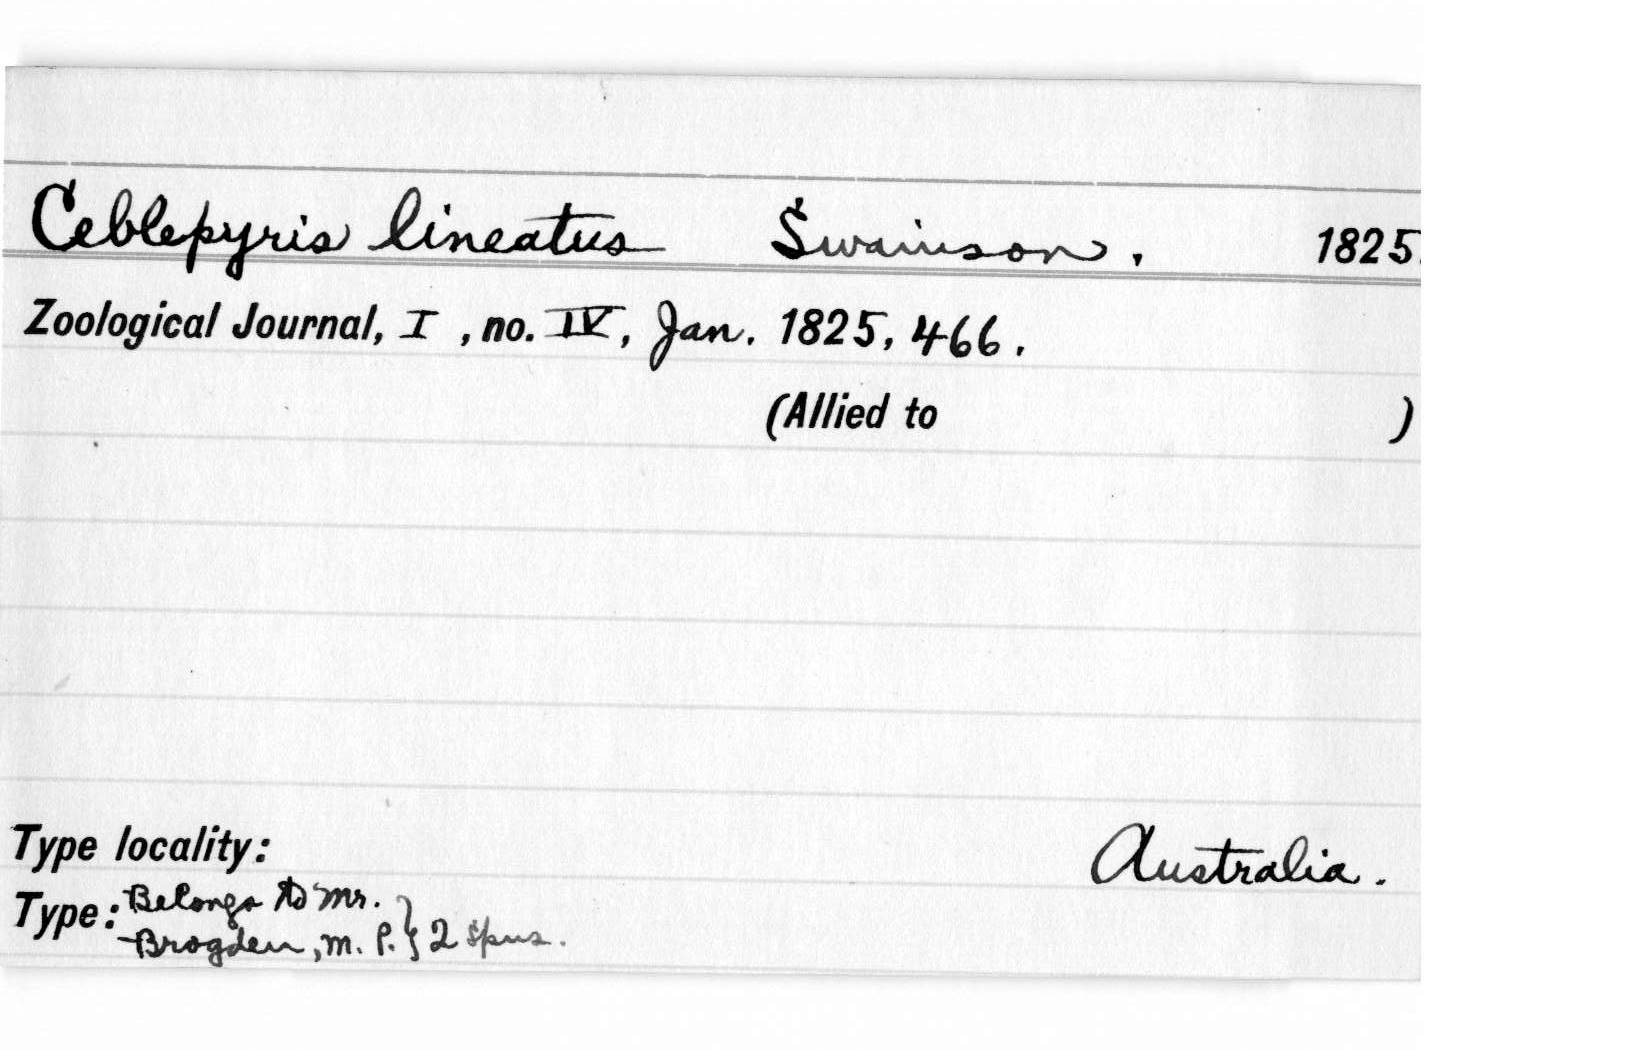 Ceblepyris lineatus Swainson. 1825.
Zoological Journal, I , no. IV, Jan. 1825, 466.
(Allied to )
Type locality: Australia.
Type: Belongs to Mr.
Brogden, M. P. } 2 spns.